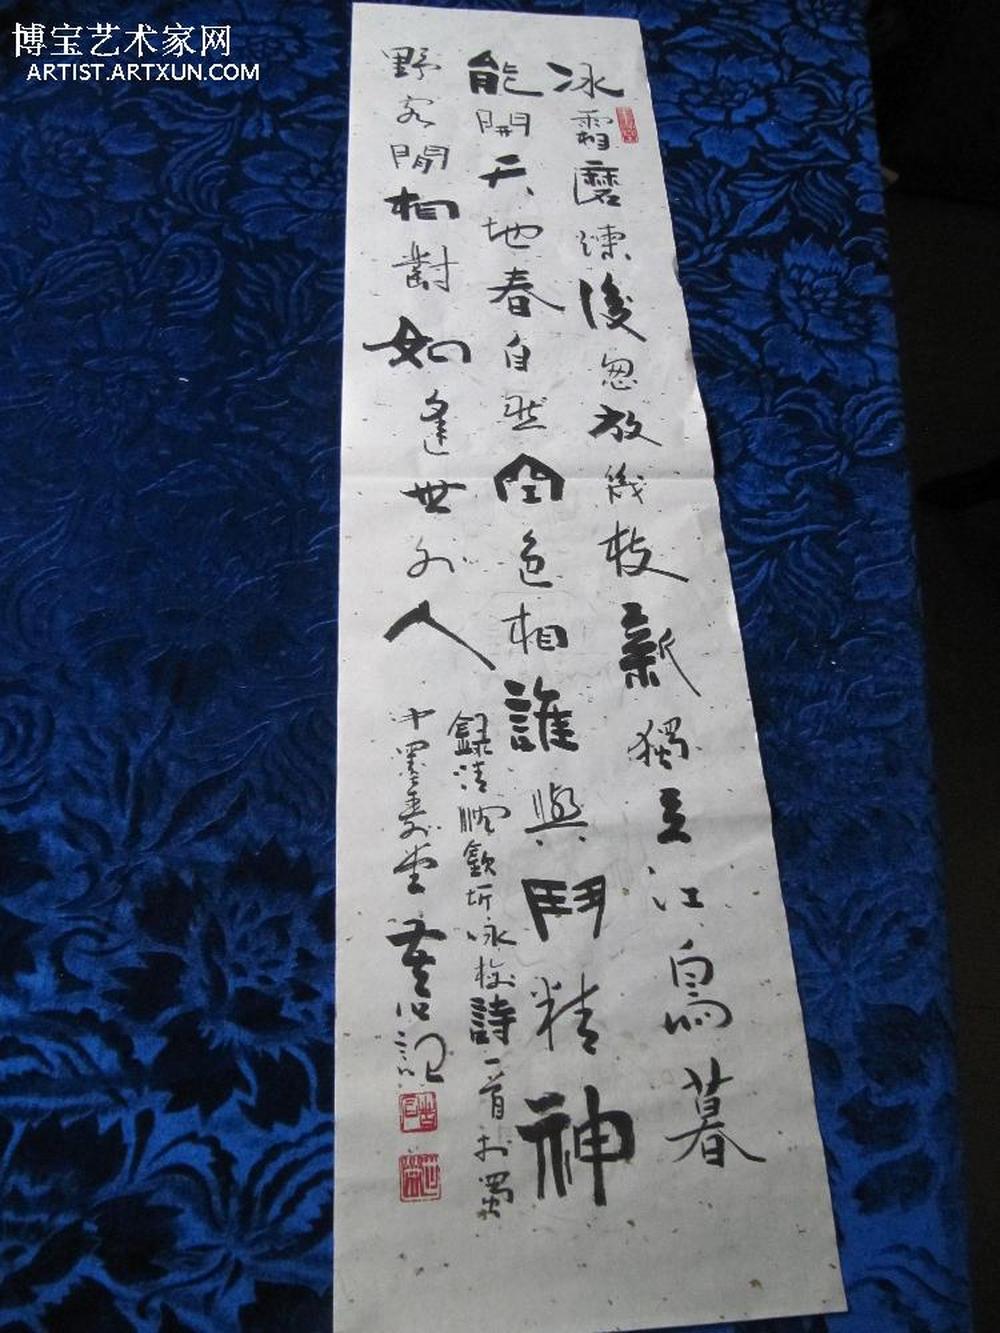 博宝艺术家网
ARTIST.ARTXUN.COM
冰霜磨煉後忽放幾枝新獨立江鳥暮
能開天地春自然空色相誰與鬥精神
野客閒相對如逢世外人
錄清 永梅詩一首於蜀
中墨 堂 記